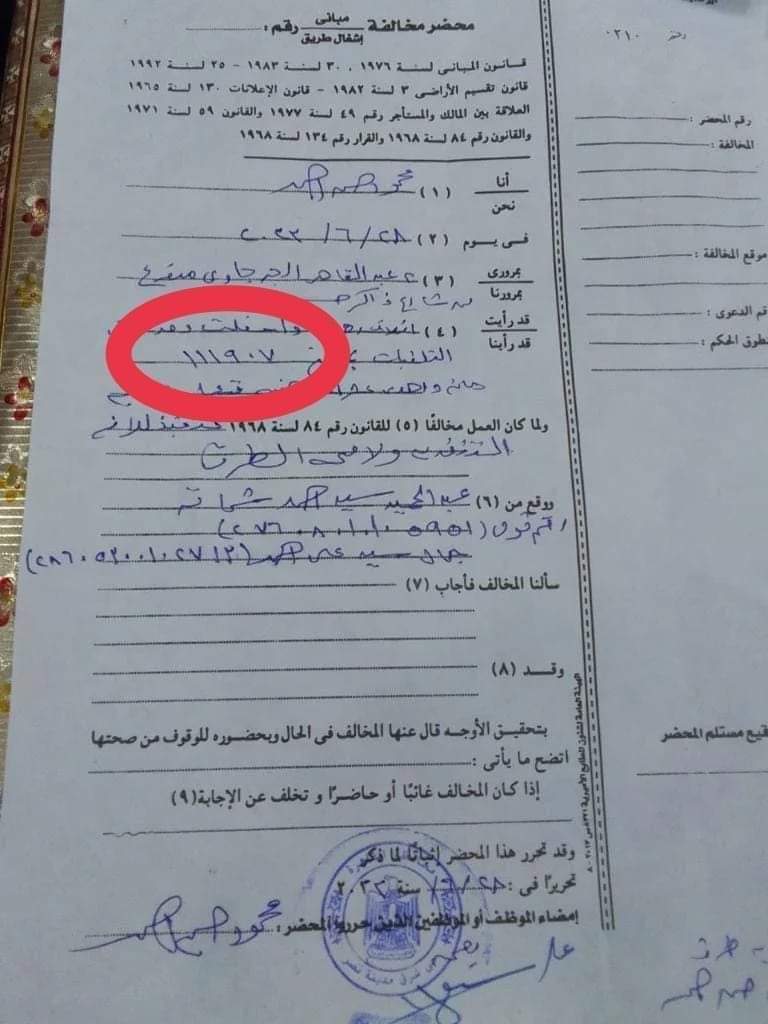 محضر مخالفة مبانى / إشغال طريق رقم :
قانون المبانى لسنة ١٩٧٦ ، ٣٠ لسنة ١٩٨٣ - ٢٥ لسنة ١٩٩٢
قانون تقسيم الأراضى ٣ لسنة ١٩٨٢ - قانون الإعلانات ١٣٠ لسنة ١٩٦٥
العلاقة بين المالك والمستأجر رقم ٤٩ لسنة ١٩٧٧ والقانون ٥٩ لسنة ١٩٧١
والقانون رقم ٨٤ لسنة ١٩٦٨ والقرار رقم ١٣٤ لسنة ١٩٦٨
أنا / نحن (١) محمود حسن احمد
فى يوم (٢) ٢٨ / ٦ / ٢٠٢٣
بمرورى / بمرورنا (٣) ٢ عبد القاهر الجرجاوى متفرع
من شارع ذاكر
قد رأيت / قد رأينا (٤)
التلفيات ١١١٩٠٧
ولما كان العمل مخالفًا (٥) للقانون رقم ٨٤ لسنة ١٩٦٨
الطرق
ووقع من (٦) عبد الحميد سيد احمد شحاته
رقم قومى
جمال سيد على احمد
سألنا المخالف فأجاب (٧)
وقد (٨)
بتحقيق الأوجه قال عنها المخالف فى الحال وبحضوره للوقوف من صحتها
اتضح ما يأتى :
إذا كان المخالف غائبًا أو حاضرًا و تخلف عن الإجابة (٩)
وقد تحرر هذا المحضر إثباتًا لما ذكر
تحريرًا فى : ٢٨ / ٦ / سنة ٢٠٢٣
إمضاء الموظف أو الموظفين الذين حرروا المحضر : محمود حسن احمد
٠٢١٠
رقم المحضر :
المخالفة :
موقع المخالفة :
قم الدعوى :
نطوق الحكم :
قيع مستلم المحضر
الهيئة العامة لشئون المطابع الأميرية